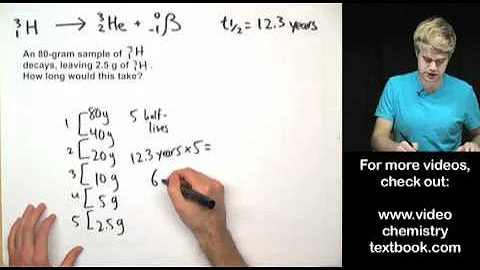 ³₁H → ³₂He + ⁰₋₁β
t½ = 12.3 years
An 80-gram sample of ³₁H
decays, leaving 2.5 g of ³₁H.
How long would this take?
1 [ 80g
40g
2 [ 20g
3 [ 10g
4 [ 5g
5 [ 2.5g
5 half-
lives
12.3 years × 5 =
6
For more videos,
check out:
www.video
chemistry
textbook.com